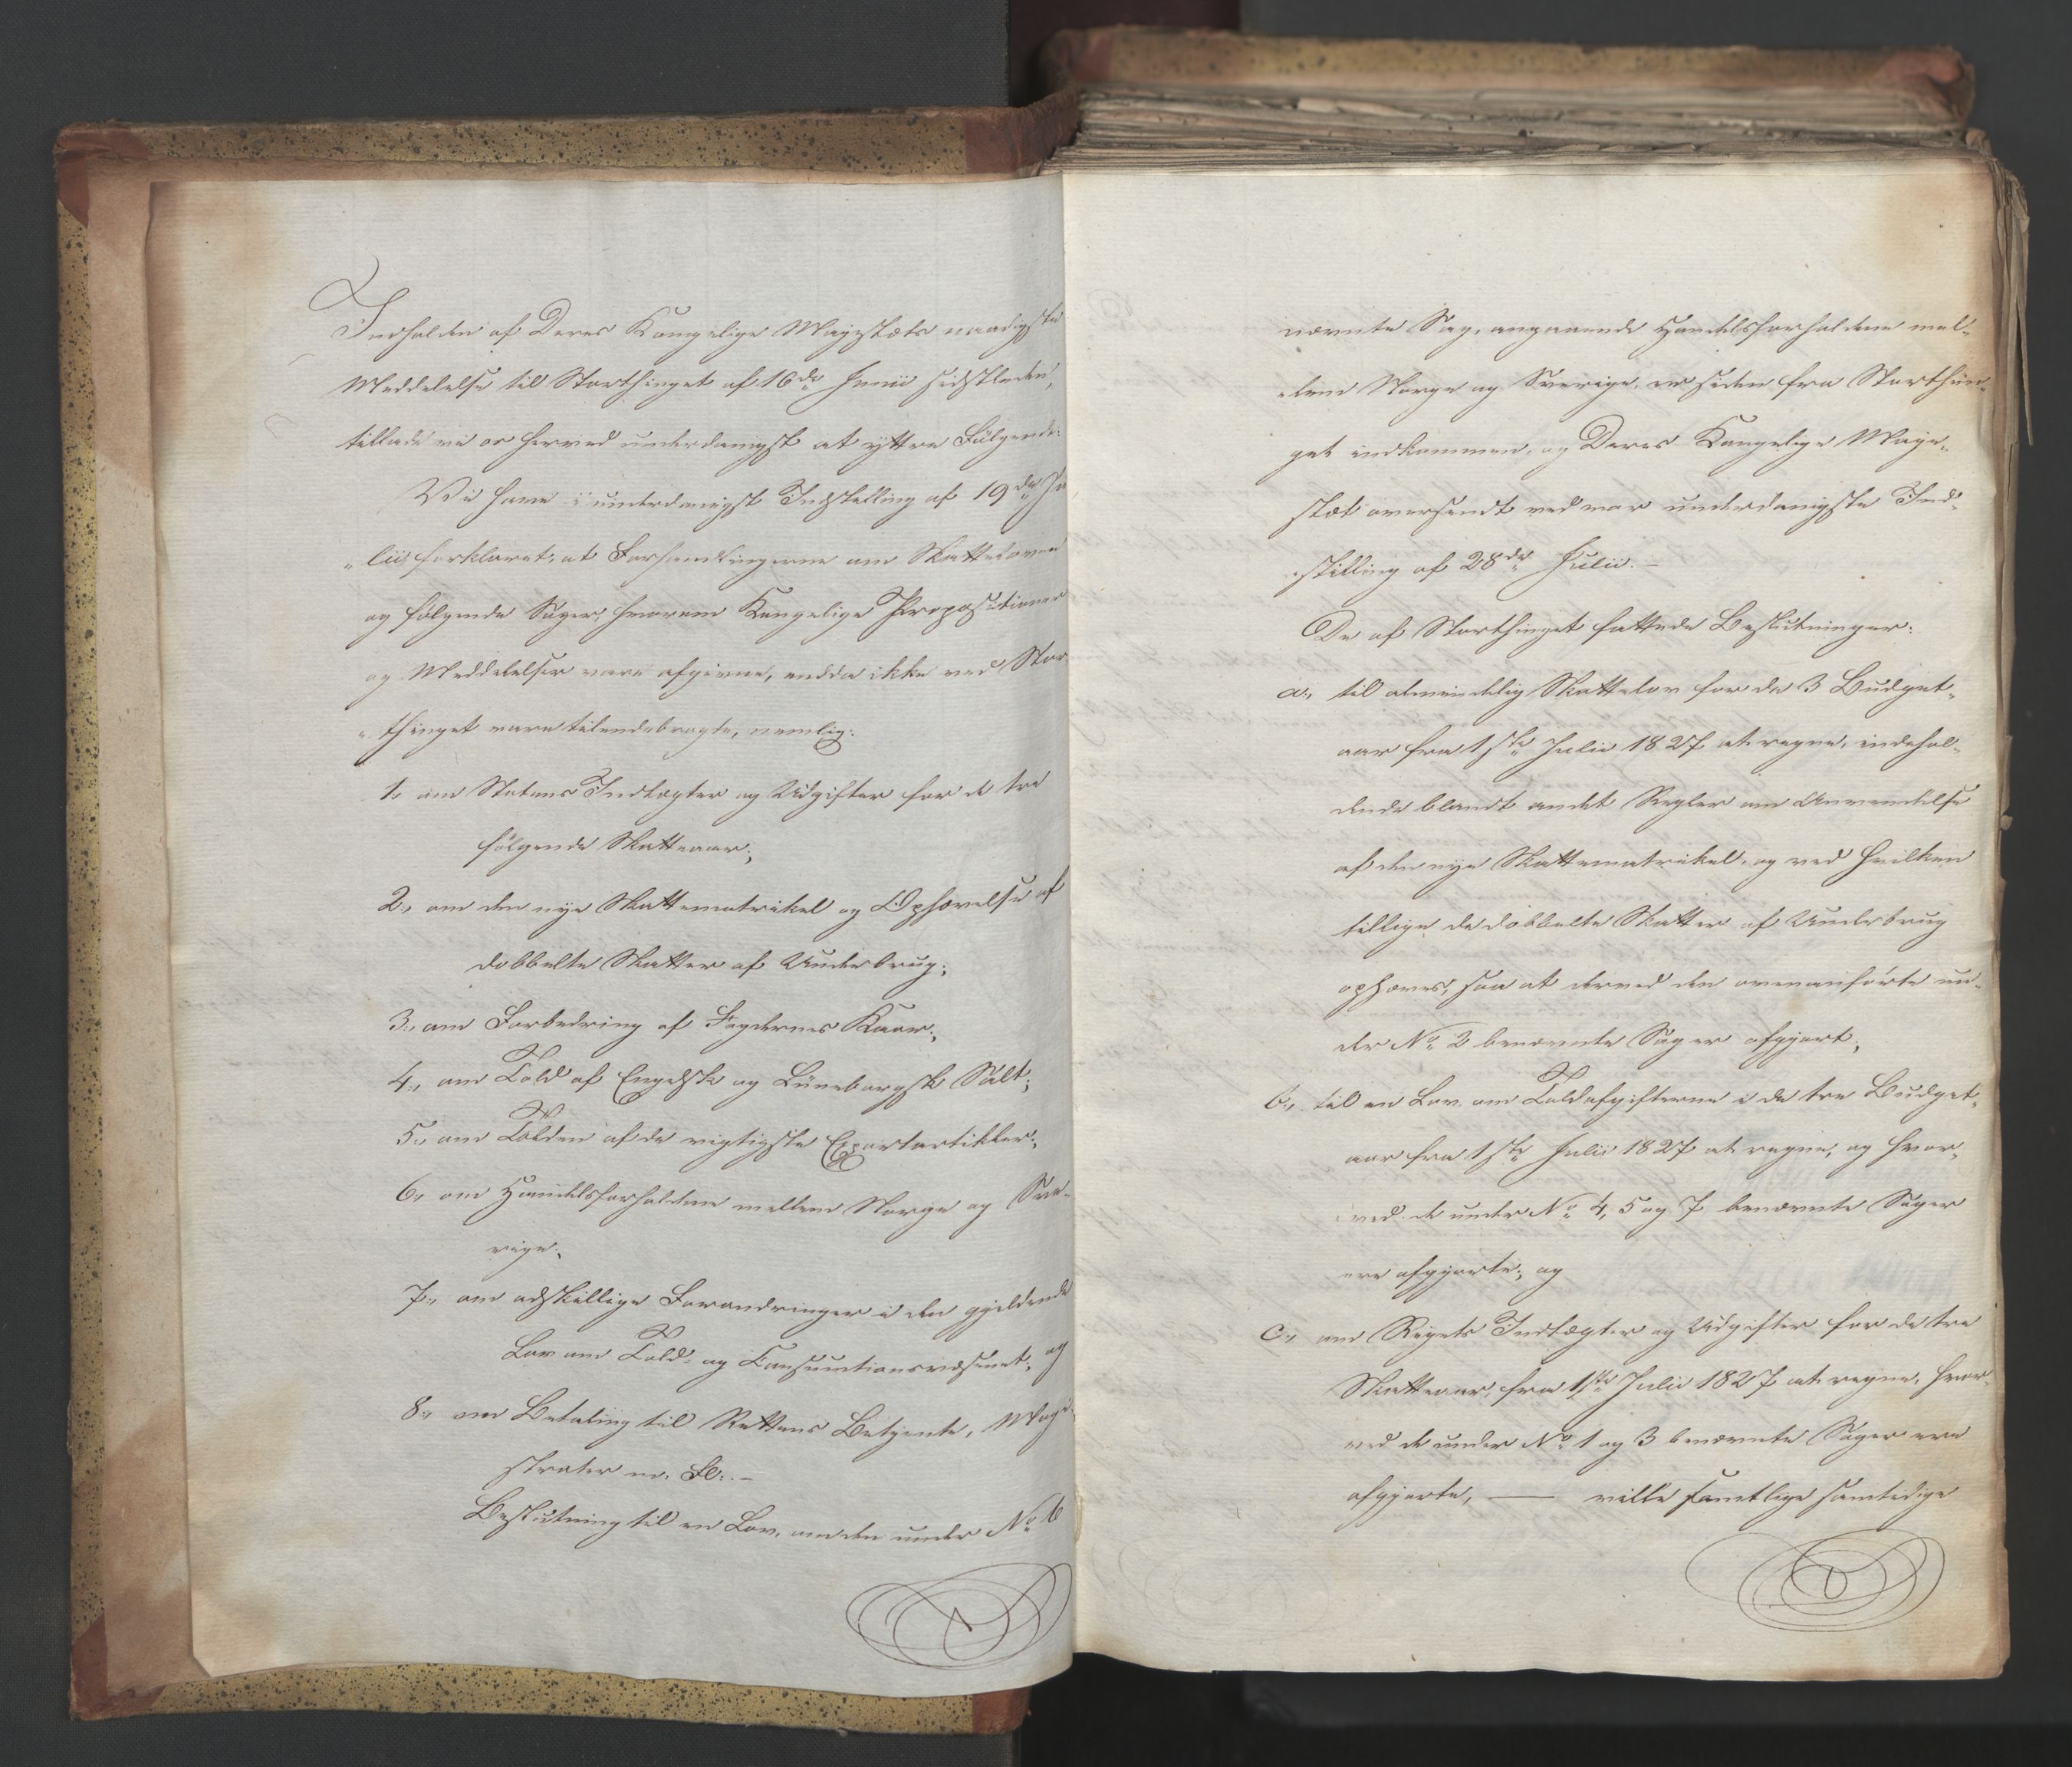 Inholden af Deres Kongelige Majestæts naadigste
Meddelelse til Storthinget af 16de Junii sidstleden,
tillade vi os herved underdanigst at yttre Følgende:
Vi have i underdanigst Indstilling af 19de Ju
„lii forklaret, at Forhandlingerne om Skatteloven
og følgende Sager, hvorom Kongelige Propositioner
og Meddelelser vare afgivne, endda ikke ved Stor
„thinget vare tilendebragte, nemlig:
1, om Statens Indtægter og Udgifter for de tre
følgende Skatteaar;
2, om den nye Skattematrikel og Ophævelse af
dobbelte Skatter af Underbrug;
3, om Forbedring af Fogdernes Kaar;
4, om Told af Engelsk og Lüneborgsk Salt;
5, om Tolden af de vigtigste Exportartikler;
6, om Handelsforholdene mellem Norge og Sve-
rige;
7, om adskillige Forandringer i den gjeldende
Lov om Told- og Consumtionsvæsenet; og
8, om Betaling til Rettens Betjente, Magi-
strater m. Fl:. –
Beslutning til en Lov, om den under No 6
nævnte Sag, angaaende Handelsforholdene mel-
„lem Norge og Sverige, er siden fra Storthin-
get indkommen, og Deres Kongelige Maje-
stæt oversendt ved vor underdanigste Ind-
„stilling af 28de Julii. –
De af Storthinget fattede Beslutninger:
a, til almindelig Skattelov for de 3 Budget-
aar fra 1ste Julii 1827 at regne, indehol-
dende blandt andet Regler om Anvendelse
af den nye Skattematrikel, og ved hvilken
tillige de dobbelte Skatter af Underbrug
ophæves, saa at derved den ovenanførte un-
der No 2 benævnte Sag er afgjort;
b, til en Lov om Toldafgifterne i de tre Budget-
aar fra 1ste Julii 1827 at regne, og hvor-
ved de under No 4, 5 og 7 benævnte Sager
ere afgjorte; og
c, om Rigets Indtægter og Udgifter for de tre
Skatteaar, fra 1ste Julii 1827 at regne, hvor-
ved de under No 1 og 3 benævnte Sager ere
afgjorte, — ville samtlige samtidige